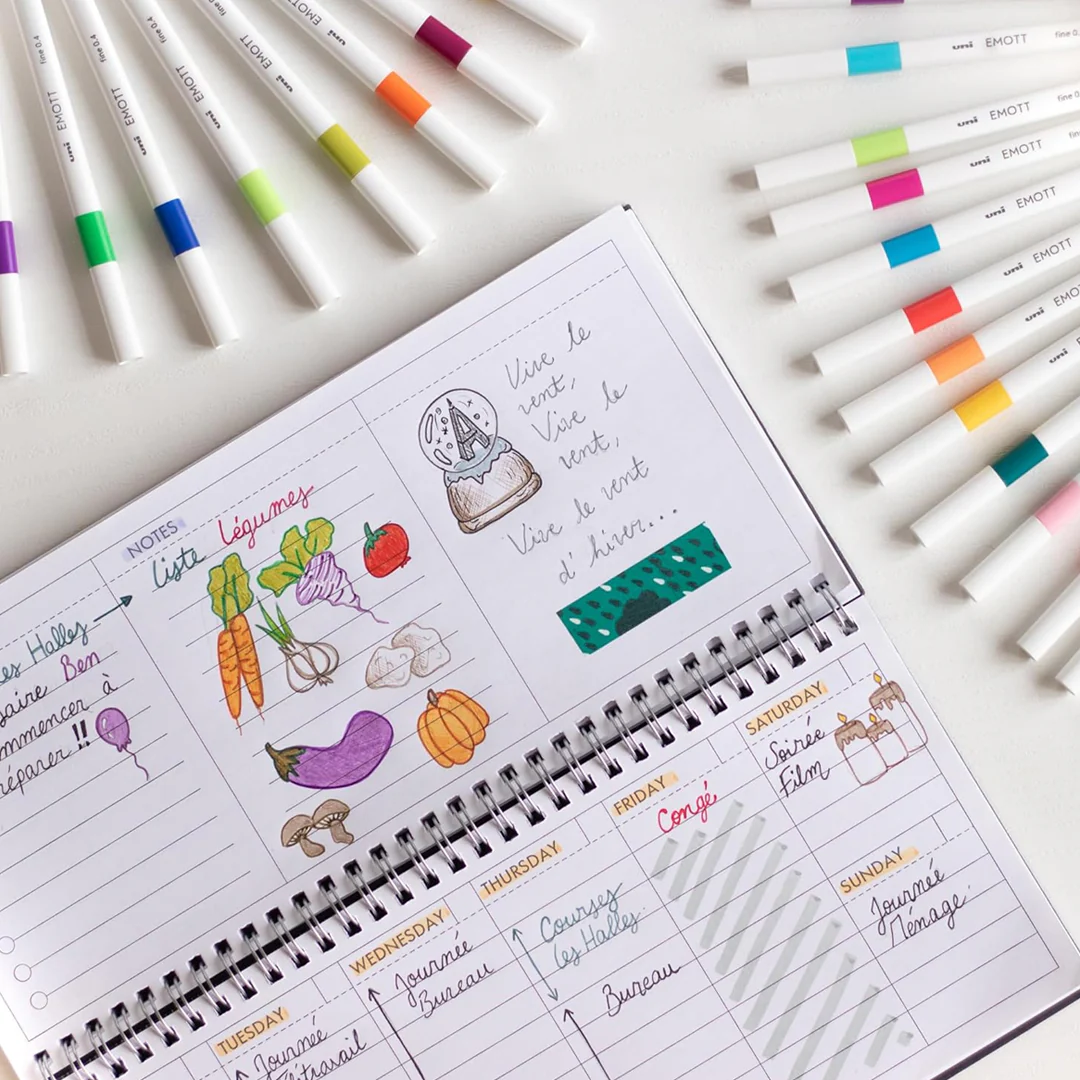 fine 0.4 EMOTT uni
fine 0.4 EMOTT uni
fine 0.4 EMOTT uni
fine 0.4 EMOTT uni
EMOTT uni
uni EMOTT fine 0.
uni EMOTT fine 0
uni EMOTT
uni EMOTT
uni EMOTT
uni
uni
NOTES
Liste Légumes
Les Halles
Ben
à
!!
Vive le
vent,
Vive le
vent,
Vive le vent
d'hiver...
TUESDAY
Journée
Télétravail
WEDNESDAY
Journée
Bureau
THURSDAY
Courses
Les Halles
Bureau
FRIDAY
Congé
SATURDAY
Soirée
Film
SUNDAY
Journée
Ménage